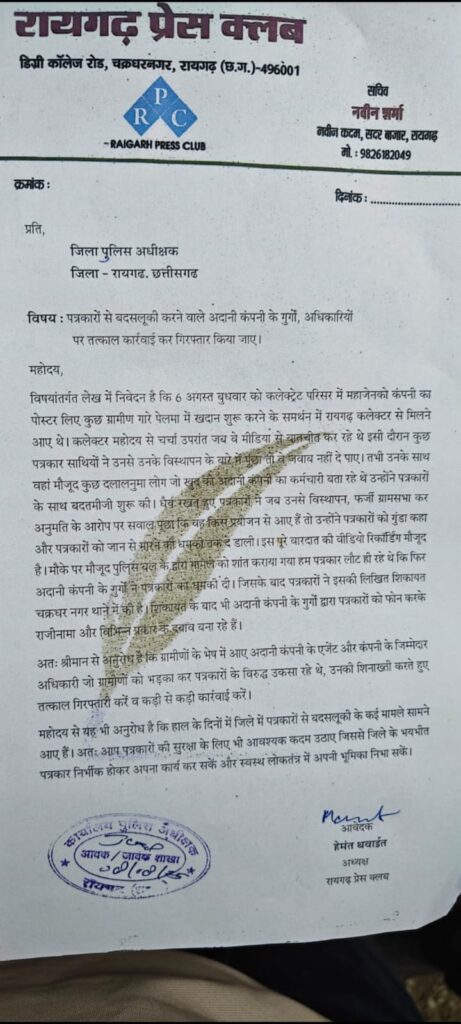 रायगढ़ प्रेस क्लब
डिग्री कॉलेज रोड, चक्रधरनगर, रायगढ़ (छ.ग.)-496001
R P C
RAIGARH PRESS CLUB
सचिव
नवीन शर्मा
नवीन कदम, सदर बाजार, रायगढ़
मो. : 9826182049
क्रमांक :
दिनांक : ........................
प्रति,
जिला पुलिस अधीक्षक
जिला - रायगढ. छत्तीसगढ
विषय : पत्रकारों से बदसलूकी करने वाले अदानी कंपनी के गुर्गो, अधिकारियों
पर तत्काल कार्रवाई कर गिरफ्तार किया जाए।
महोदय,
विषयांतर्गत लेख में निवेदन है कि 6 अगस्त बुधवार को कलेक्ट्रेट परिसर में महाजेनको कंपनी का
पोस्टर लिए कुछ ग्रामीण गारे पेलमा में खदान शुरू करने के समर्थन में रायगढ़ कलेक्टर से मिलने
आए थे। कलेक्टर महोदय से चर्चा उपरांत जब वे मीडिया से बातचीत कर रहे थे इसी दौरान कुछ
पत्रकार साथियों ने उनसे उनके विस्थापन के बारे में पूछा तो वे जवाब नहीं दे पाए। तभी उनके साथ
वहां मौजूद कुछ दलालनुमा लोग जो खुद को अदानी कंपनी का कर्मचारी बता रहे थे उन्होंने पत्रकारों
के साथ बदतमीजी शुरू की। धैर्य रखते हुए पत्रकारों ने जब उनसे विस्थापन, फर्जी ग्रामसभा कर
अनुमति के आरोप पर सवाल पूछा कि वह किस प्रयोजन से आए हैं तो उन्होंने पत्रकारों को गुंडा कहा
और पत्रकारों को जान से मारने की धमकी तक दे डाली। इस पूरे वारदात की वीडियो रिकॉर्डिंग मौजूद
है। मौके पर मौजूद पुलिस बल के द्वारा मामले को शांत कराया गया हम पत्रकार लौट ही रहे थे कि फिर
अदानी कंपनी के गुर्गों ने पत्रकारों को धमकी दी। जिसके बाद पत्रकारों ने इसकी लिखित शिकायत
चक्रधर नगर थाने में की है। शिकायत के बाद भी अदानी कंपनी के गुर्गों द्वारा पत्रकारों को फोन करके
राजीनामा और विभिन्न प्रकार के दबाव बना रहे हैं।
अतः श्रीमान से अनुरोध है कि ग्रामीणों के भेष में आए अदानी कंपनी के एजेंट और कंपनी के जिम्मेदार
अधिकारी जो ग्रामीणों को भड़का कर पत्रकारों के विरुद्ध उकसा रहे थे, उनकी शिनाख्ती करते हुए
तत्काल गिरफ्तारी करें व कड़ी से कड़ी कार्रवाई करें।
महोदय से यह भी अनुरोध है कि हाल के दिनों में जिले में पत्रकारों से बदसलूकी के कई मामले सामने
आए हैं। अतः आप पत्रकारों की सुरक्षा के लिए भी आवश्यक कदम उठाए जिससे जिले के भयभीत
पत्रकार निर्भीक होकर अपना कार्य कर सकें और स्वस्थ लोकतंत्र में अपनी भूमिका निभा सकें।
आवेदक
हेमंत थवाईत
अध्यक्ष
रायगढ़ प्रेस क्लब
कार्यालय पुलिस अधीक्षक
आवक / जावक शाखा
08/08/25
रायगढ़